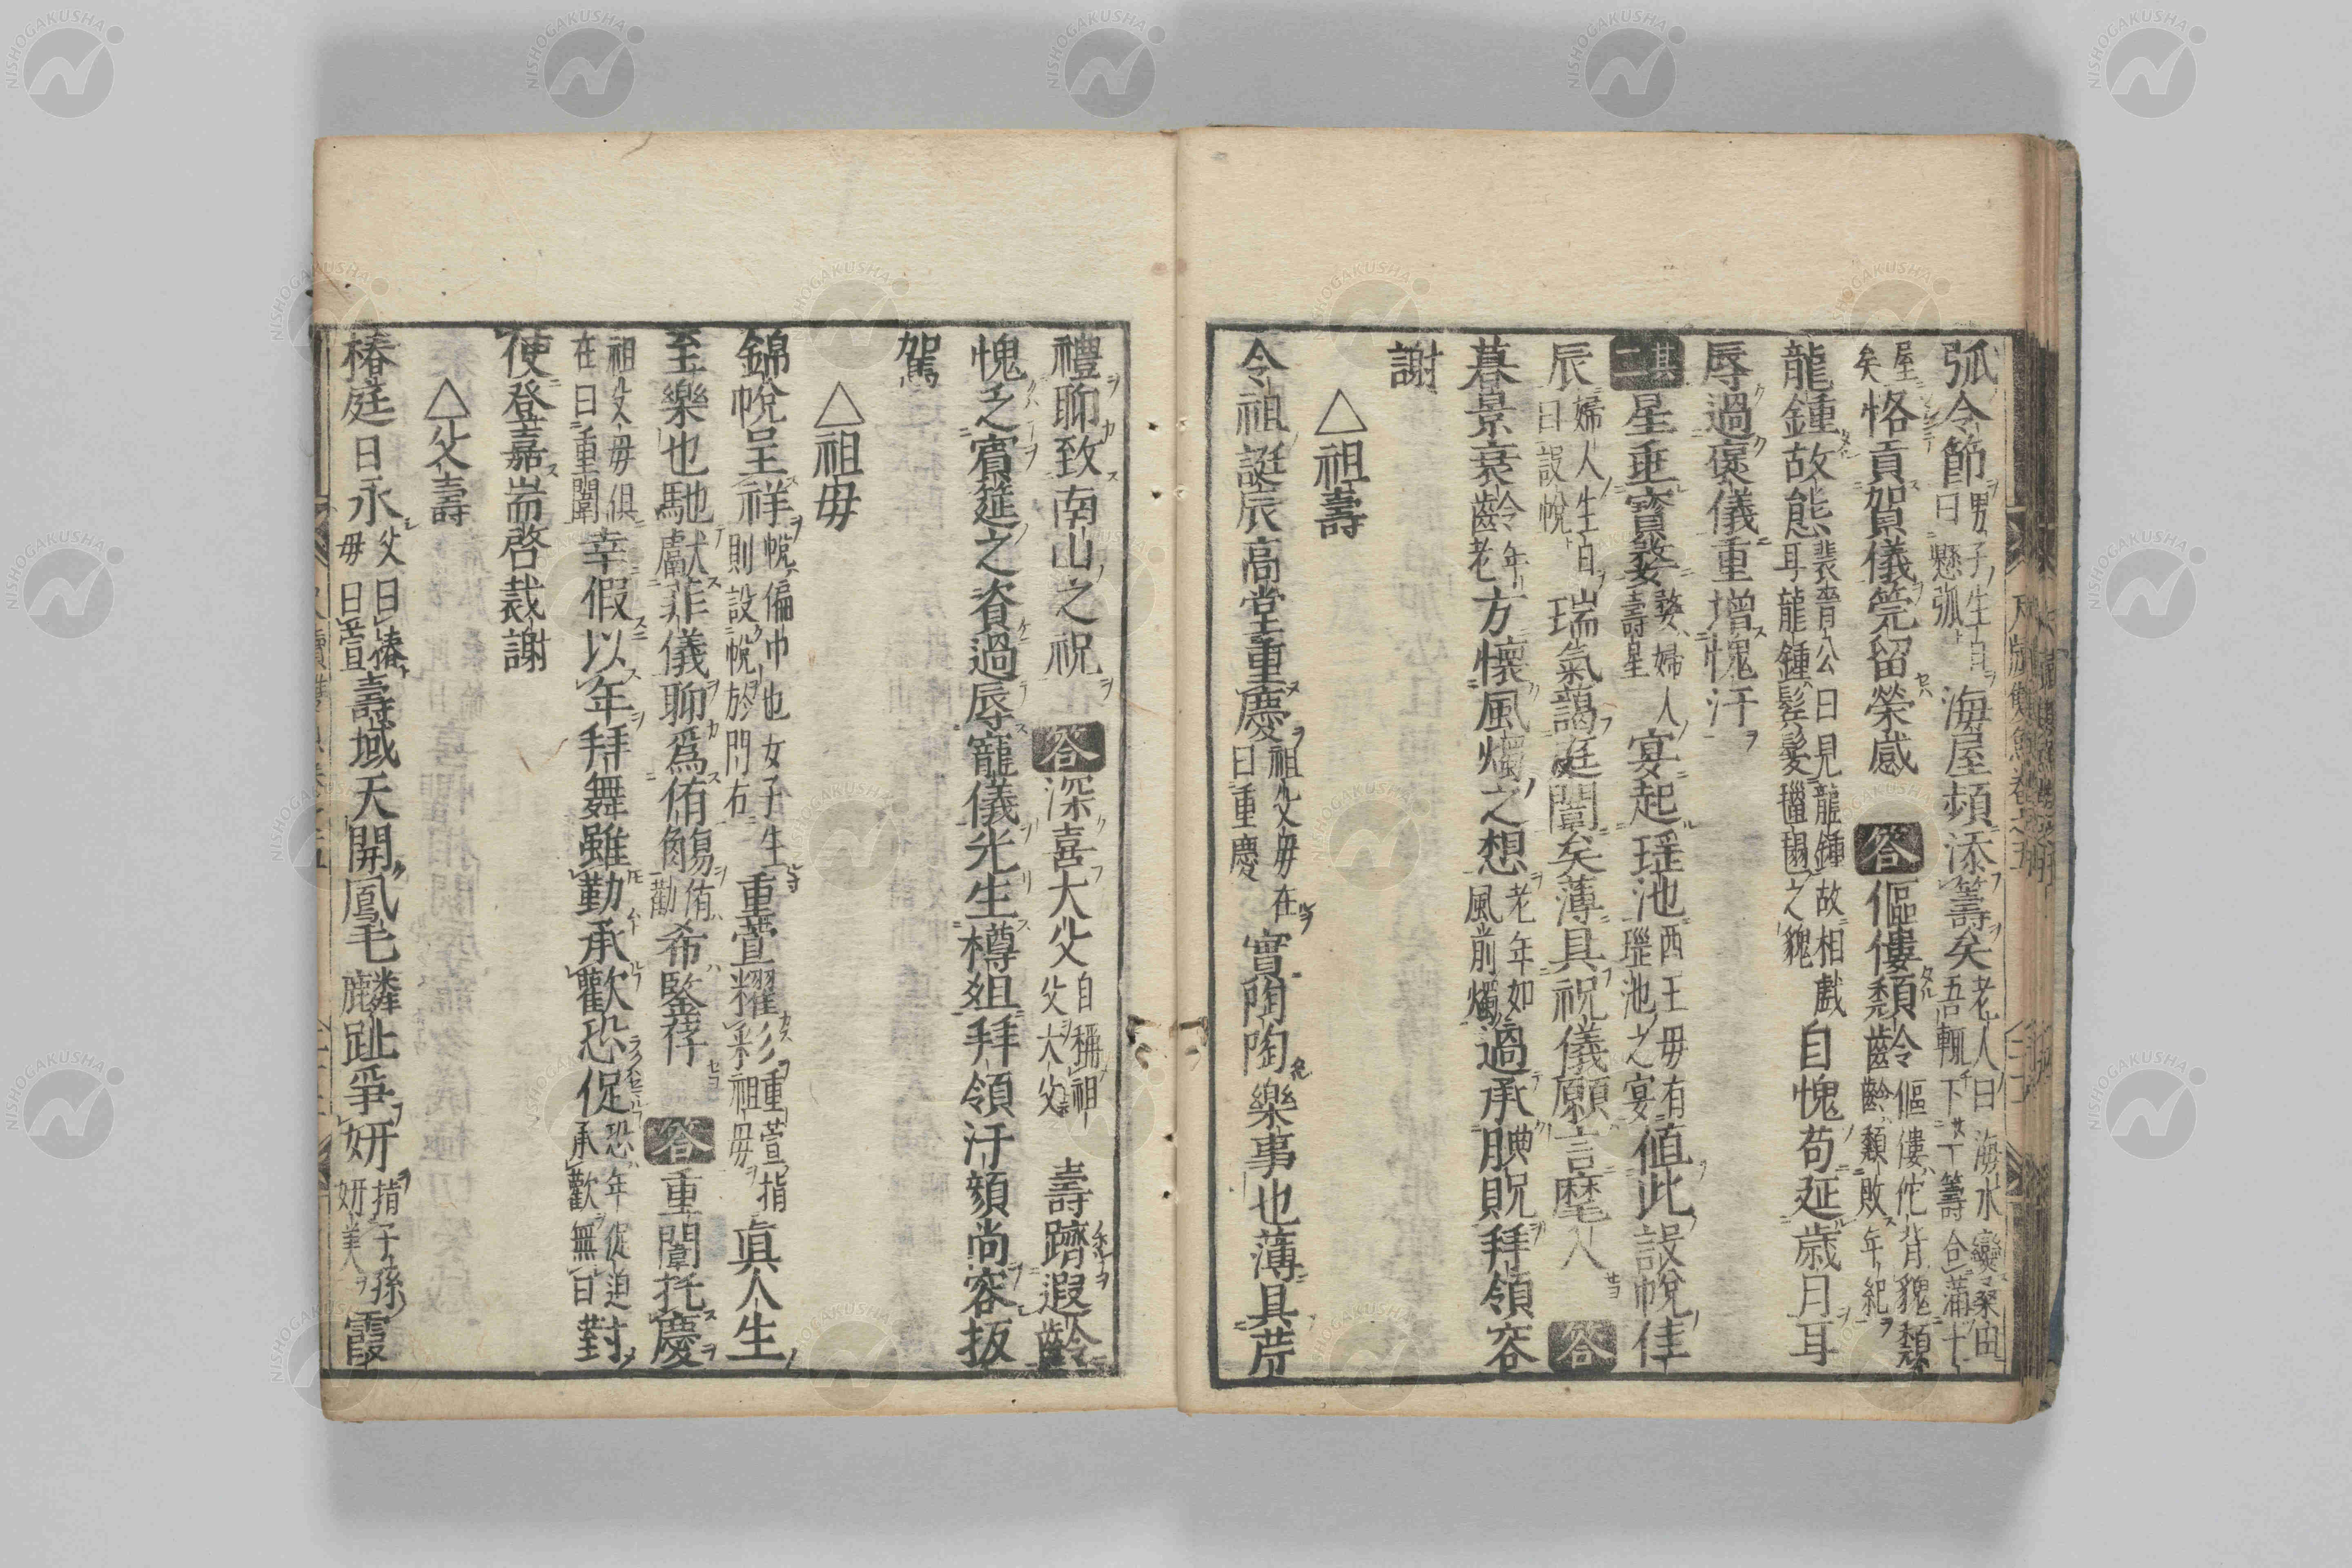 弧令節男子生自
曰懸弧海屋頻添籌矣老人曰海水變桑田
吾輒下一籌今滿十
屋
矣恪貢賀儀筦留榮感答傴僂頽齡傴僂佗背貌頽
齡頽敗年紀
龍鍾故態裴晉公曰見龍鍾故相戲
耳龍鍾髩髮㲱毸之貌自愧苟延歳月耳
辱過褒儀重增愧汗
其二星垂寳婺婺婦人
壽星宴起瑶池西王母有
瑶池之宴値此設帨佳
辰婦人生自
曰設帨瑞氣藹庭闈矣薄具祝儀願言麾入答
暮景衰齡年
老方懷風燭之想老年如
風前燭過承腆貺拜領容
謝
△祖壽
令祖誕辰高堂重慶祖父母在
曰重慶實陶陶樂事也薄具荒
禮聊致南山之祝答深喜大父自稱祖
父大父壽躋遐齡
愧乏賓筵之資過辱寵儀光生樽俎拜領汗顔尚容扳
駕
△祖母
錦帨呈祥帨偏巾也女子生
則設帨於門右重萱耀彩重萱指
祖母眞人生
至樂也馳獻菲儀聊爲侑觴侑
勸希鑒存答重闈托慶
祖父母俱
在曰重闈幸假以年拜舞雖勤承歡恐促恐年促迫
承歡無日對
使登嘉耑啓裁謝
△父壽
椿庭日永父曰椿
母曰萱壽域天開鳳毛麟趾爭妍指子孫
妍美霞